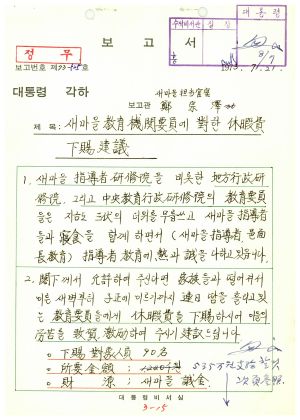 대통령
수석비서관 실장
정무
보고서
보고번호 제73-75호 1973. 7. 21.
대통령 각하 새마을 担当官室
보고관 鄭宗澤
제목: 새마을 敎育機關要員에 對한 休暇費
下賜建議
1. 새마을 指導者研修院을 비롯한 地方行政研
修院, 그리고 中央敎育行政研修院의 敎育要員
들은 지하 30의 더위를 무릅쓰고 새마을 指導者
들과 寢食을 함께 하면서 (새마을 指導者 邑面
長敎育) 指導者 敎育에 熱과 誠을 다하고 있읍니다.
2. 閣下께서 允許하여 주신다면 家族들과 떨어져서
이른 새벽부터 子正에 이르기까지 連日 땀을 흘리고있
는 敎育要員들에게 休暇費를 下賜하시어 이들의
勞苦를 致賀, 激勵하여 주시기 建議드립니다.
○ 下賜對象人員 90名
○ 所要金額 :
○ 財源 : 새마을 誠金
535万원
대통령비서실
3-15